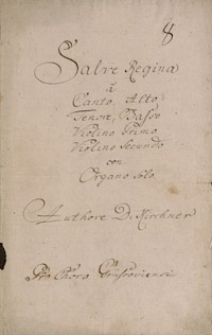 8
Salve Regina
à
Canto, Alto
Tenore, Basso
Violino Primo
Violino Secundo
con
Organo Solo.
Authore D. Kirchner
Pro Choro